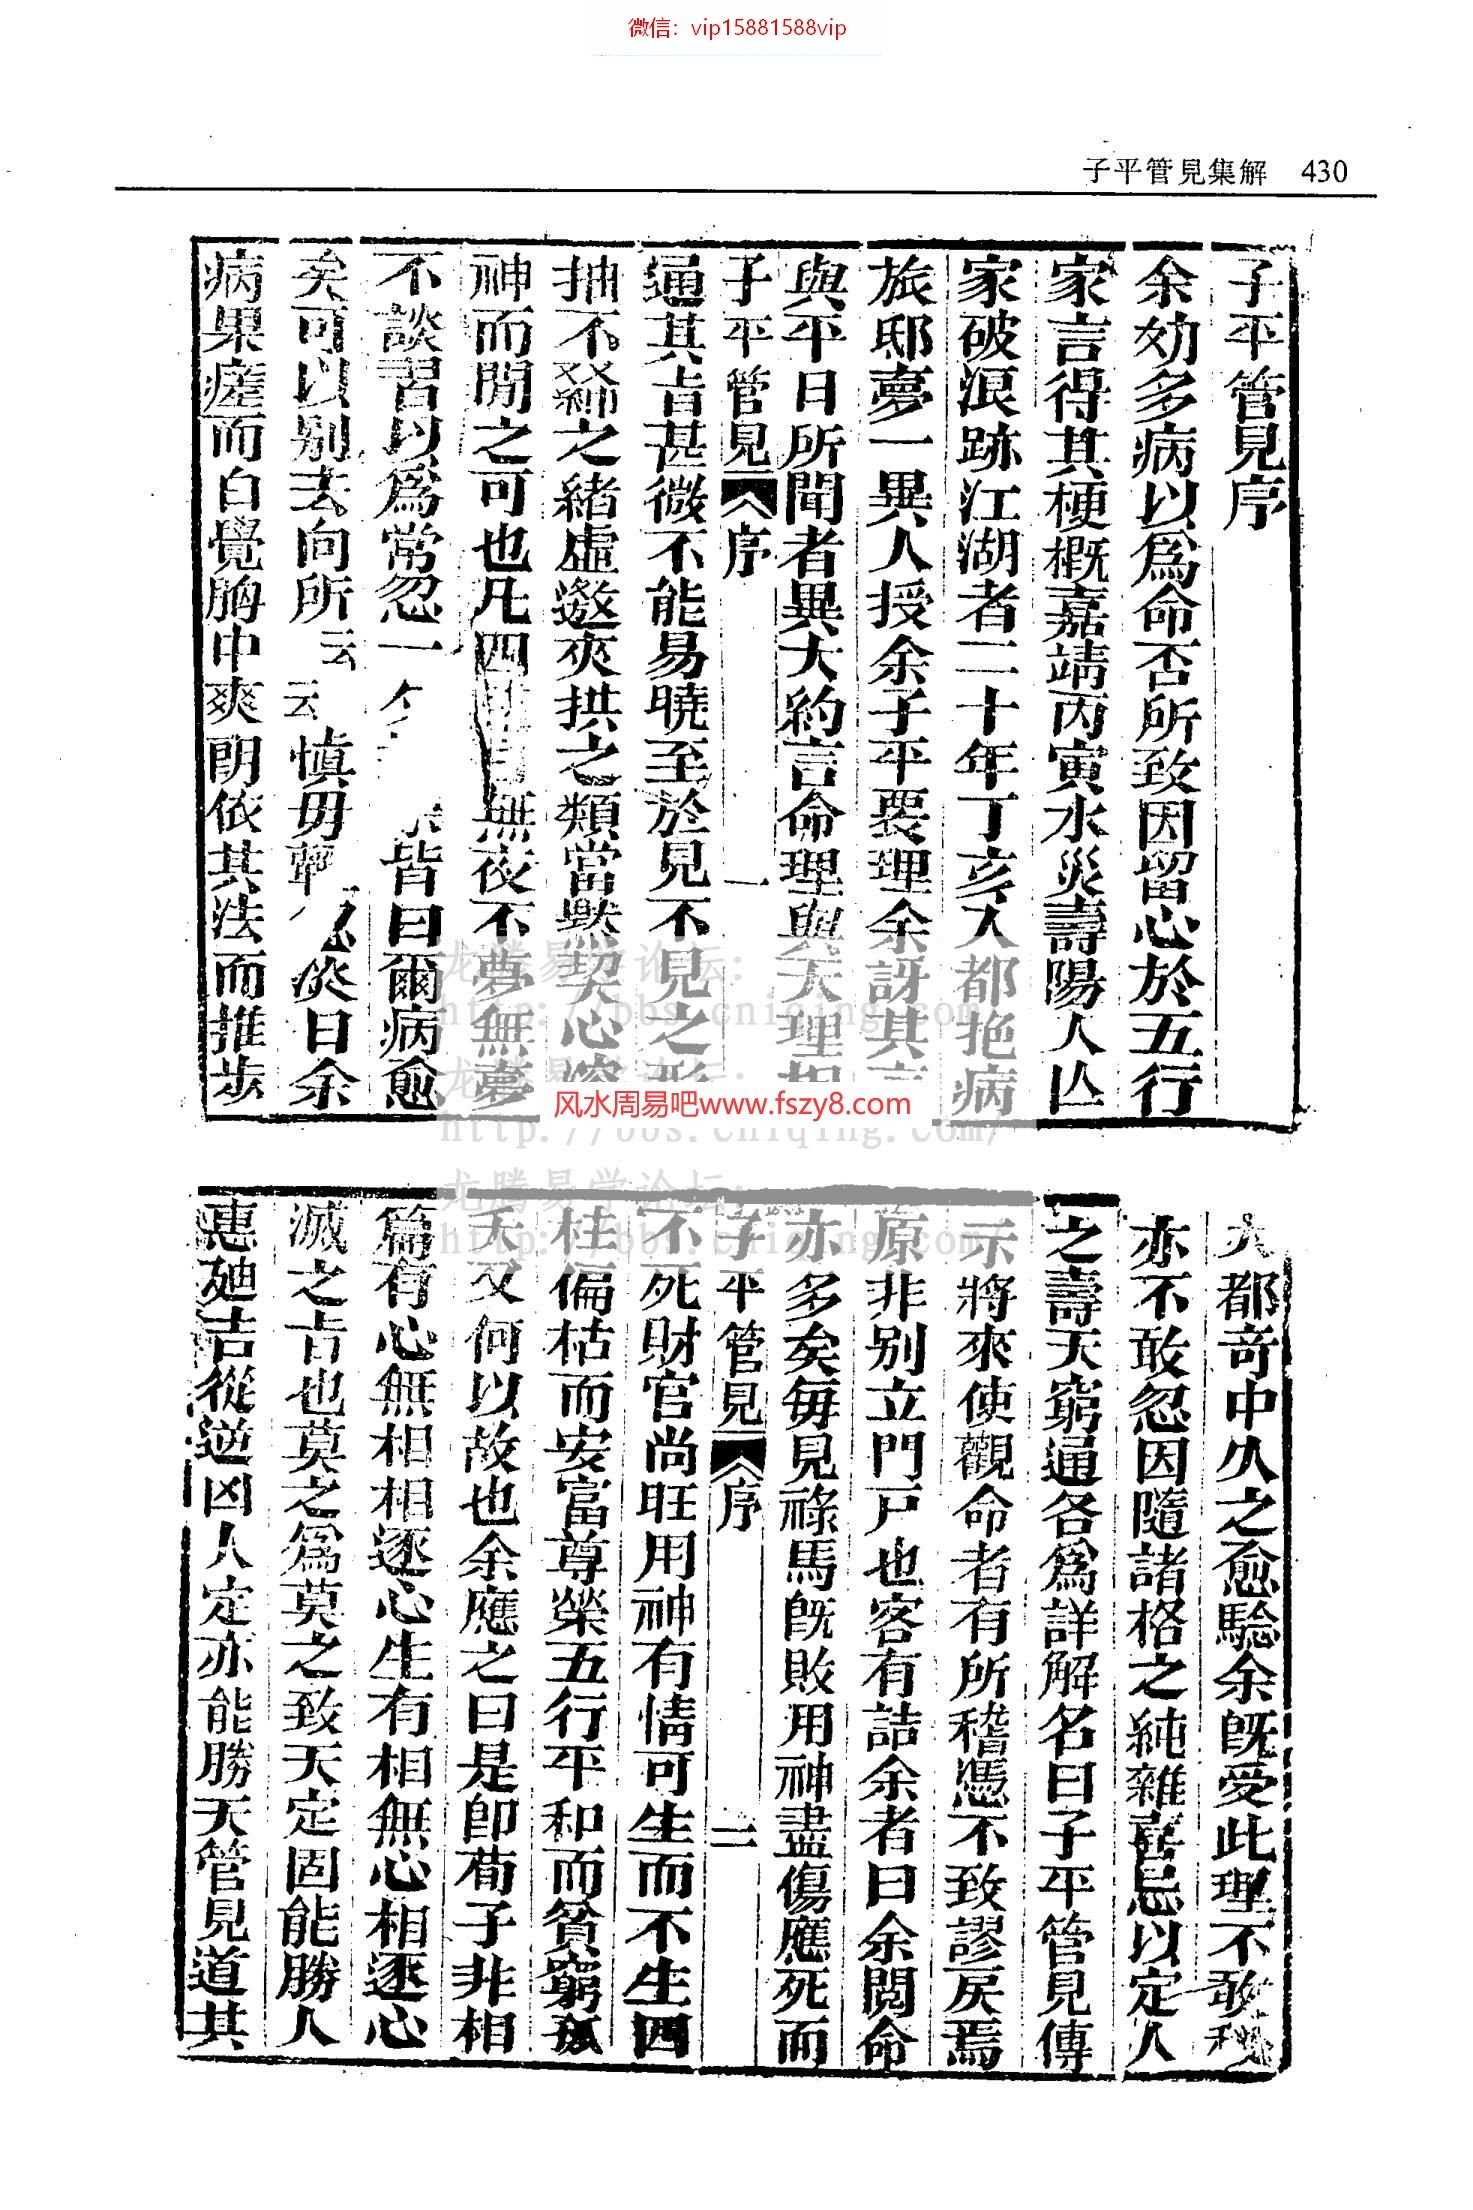 微信：vip15881588vip
子平管見集解　430
子平管見序
余幼多病以爲命否所致因留心於五行
家言得其梗概嘉靖丙寅水災壽陽人亾
家破浪跡江湖者二十年丁亥入都抱病
旅邸夢一異人授余子平要理余訝其言
與平日所聞者異大約言命理與天理相
子平管見 序 一
通其旨甚微不能易曉至於見不見之形
抽不 之緒虚邀夾拱之類當默契心
神而閒之可也凡四 無夜不夢無夢
不談習以爲常忽一 皆曰爾病愈
矣可以别去向所云云慎毋 日余
病果瘥而自覺胸中爽朗依其法而推步
大都奇中久之愈驗余旣愛此理不敢秘
亦不敢忽因隨諸格之純雜喜忌以定人
之壽夭窮通各爲詳解名曰子平管見傳
示將來使觀命者有所稽憑不致謬戾焉
原非别立門戸也客有詰余者曰余閲命
亦多矣每見祿馬旣敗用神盡傷應死而
子平管見 序 二
不死財官尚旺用神有情可生而不生四
柱偏枯而安富尊榮五行平和而貧窮孤
夭又何以故也余應之曰是卽荀子非相
篇有心無相相逐心生有相無心相逐心
滅之旨也莫之爲莫之致天定固能勝人
惠廸吉從逆凶人定亦能勝天管見道其
龙腾易学论坛：
http://bbs.cniqing.com/
龙腾易学论坛：
风水周易吧www.fszy8.com
http://bbs.cniqing.com/
龙腾易学论坛：
http://bbs.cniqing.com/